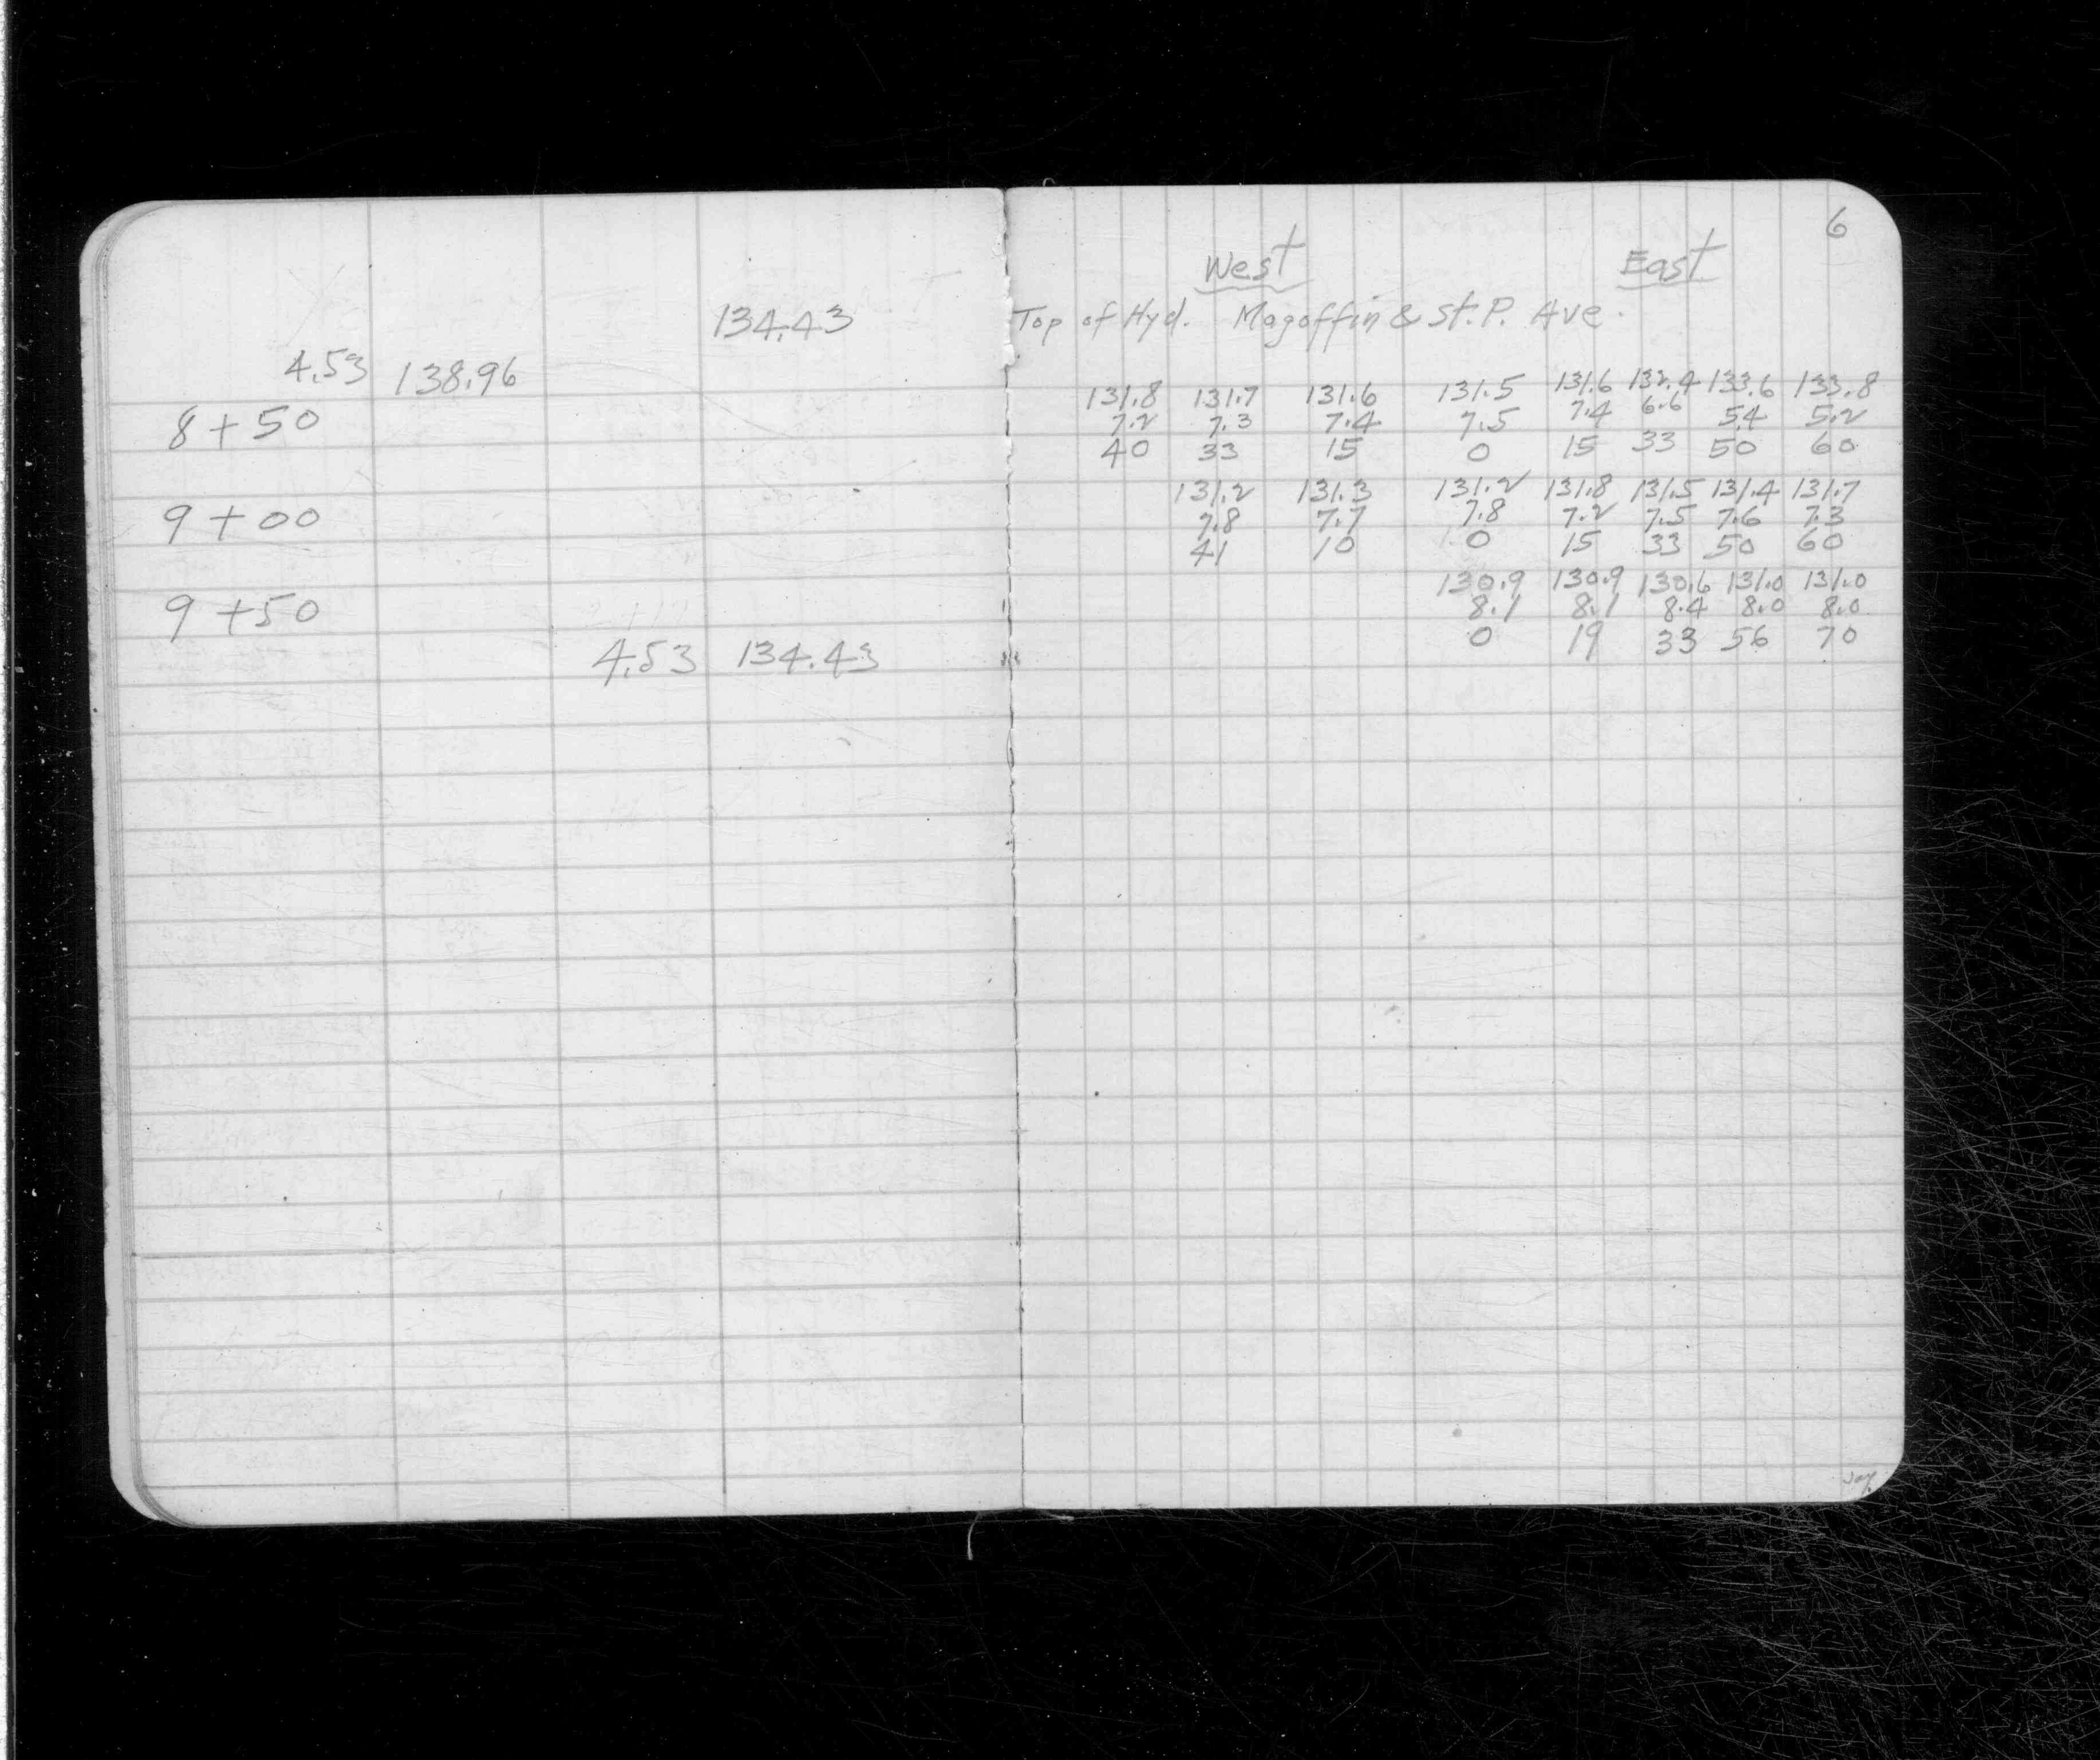 6
West East
134.43 Top of Hyd. Magoffin & St. P. Ave.
4.53 138.96
131.8 131.7 131.6 131.5 131.6 132.4 133.6 133.8
8+50 7.2 7.3 7.4 7.5 7.4 6.6 5.4 5.2
40 33 15 0 15 33 50 60
131.2 131.3 131.2 131.8 131.5 131.4 131.7
9+00 7.8 7.7 7.8 7.2 7.5 7.6 7.3
41 10 0 15 33 50 60
130.9 130.9 130.6 131.0 131.0
9+50 8.1 8.1 8.4 8.0 8.0
0 19 33 56 70
4.53 134.43